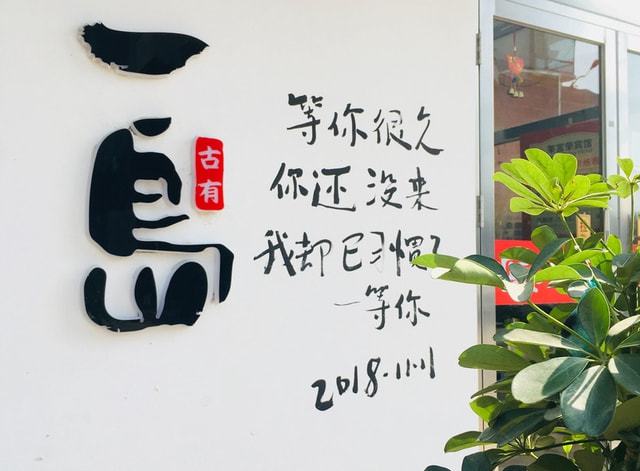 一島
古有
等你很久
你还没来
我却已习惯了
一等你
2018.11.11
宾馆